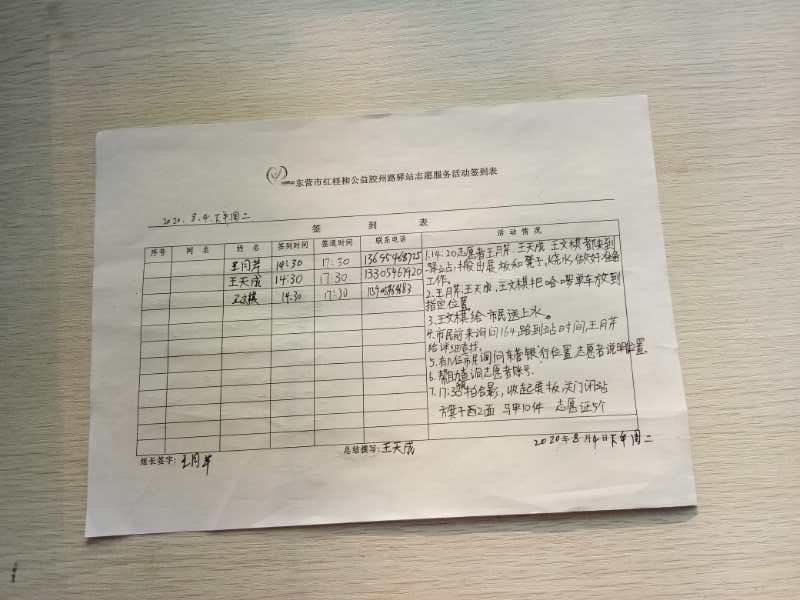 东营市红柽柳公益胶州路驿站志愿服务活动签到表
2020.8.4下午周二
签 到 表
活动情况
序号 网名 姓名 签到时间 签退时间 联系电话
王月芹 14:30 17:30
王天成 14:30 17:30 13305461920
王文棋 14:30 17:30
1.14:20志愿者王月芹 王天成 王文棋都来到
驿站,搬出展板和凳子,烧水,做好准备
工作。
2.王月芹,王天成,王文棋把哈啰单车放到
指定位置
3.王文棋给市民送上水。
4.市民前来询问164路到站时间,王月芹
给详细查找。
5.有几位市民询问东营银行位置 志愿者说明位置
6.帮助查询志愿者账号.
7.17:30拍合影,收起展板关门闭站
方凳子 马甲10件 志愿证5个
组长签字:王月芹
总结撰写:王天成
2020年8月4日下午周二